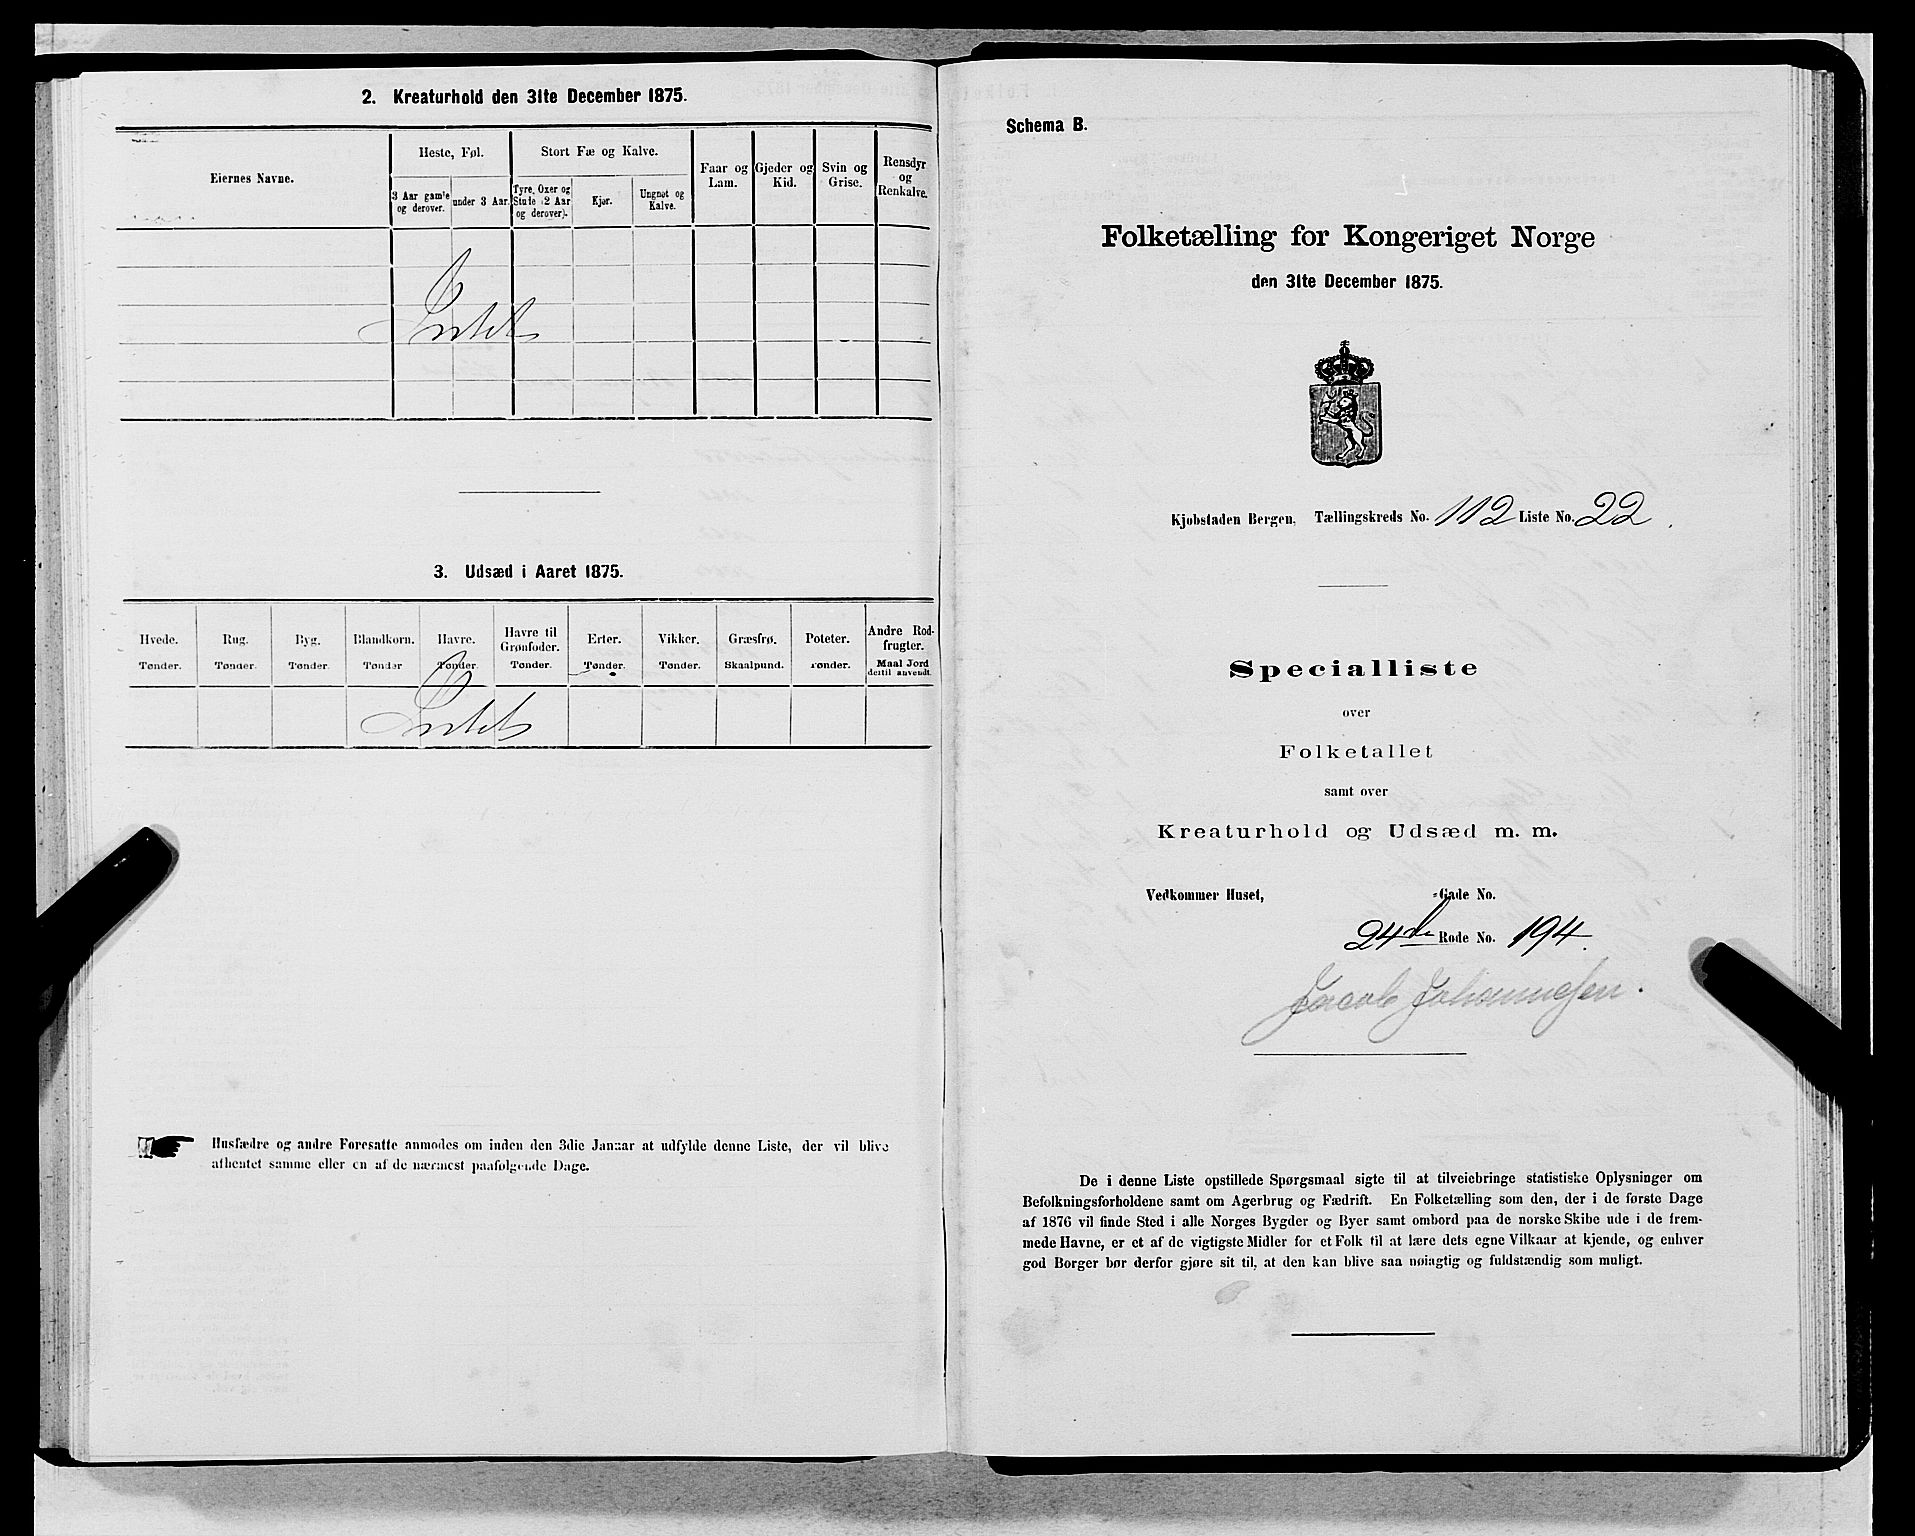 2. Kreaturhold den 31te December 1875.
Eiernes Navne.
Heste, Føl.
Stort Fæ og Kalve.
Faar og Lam.
Gjeder og Kid.
Svin og Grise.
Rensdyr og Renkalve.
3 Aar gamle og derover.
under 3 Aar.
Tyre, Oxer og Stude (2 Aar og derover).
Kjør.
Ungnøt og Kalve.
Intet
3. Udsæd i Aaret 1875.
Hvede. Rug. Byg. Blandkorn. Havre. Havre til Grønfoder. Erter. Vikker. Græsfrø. Poteter. Andre Rodfrugter.
Tønder. Tønder. Tønder. Tønder Tønder. Tønder. Tønder. Tønder. Skaalpund. Tønder. Maal Jord dertil anvendt.
Intet
Husfædre og andre Foresatte anmodes om inden den 3die Januar at udfylde denne Liste, der vil blive
afhentet samme eller en af de nærmest paafølgende Dage.
Schema B.
Folketælling for Kongeriget Norge
den 31te December 1875.
Kjøbstaden Bergen, Tællingskreds No. 112 Liste No. 22.
Specialliste
over
Folketallet
samt over
Kreaturhold og Udsæd m. m.
Vedkommer Huset, -Gade No.
24de Rode No. 194.
Jacob Johannesen.
De i denne Liste opstillede Spørgsmaal sigte til at tilveiebringe statistiske Oplysninger om
Befolkningsforholdene samt om Agerbrug og Fædrift. En Folketælling som den, der i de første Dage
af 1876 vil finde Sted i alle Norges Bygder og Byer samt ombord paa de norske Skibe ude i de frem-
mede Havne, er et af de vigtigste Midler for et Folk til at lære dets egne Vilkaar at kjende, og enhver
god Borger bør derfor gjøre sit til, at den kan blive saa nøiagtig og fuldstændig som muligt.